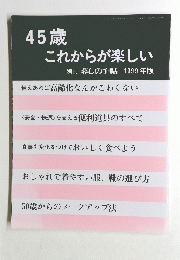 45歳
これからが楽しい
別冊 暮しの手帖 1999年版
高齢化なんかこわくない
便利道具のすべて
おいしく食べよう
おしゃれで着やすい服、靴の選び方
50歳からのメークアップ法